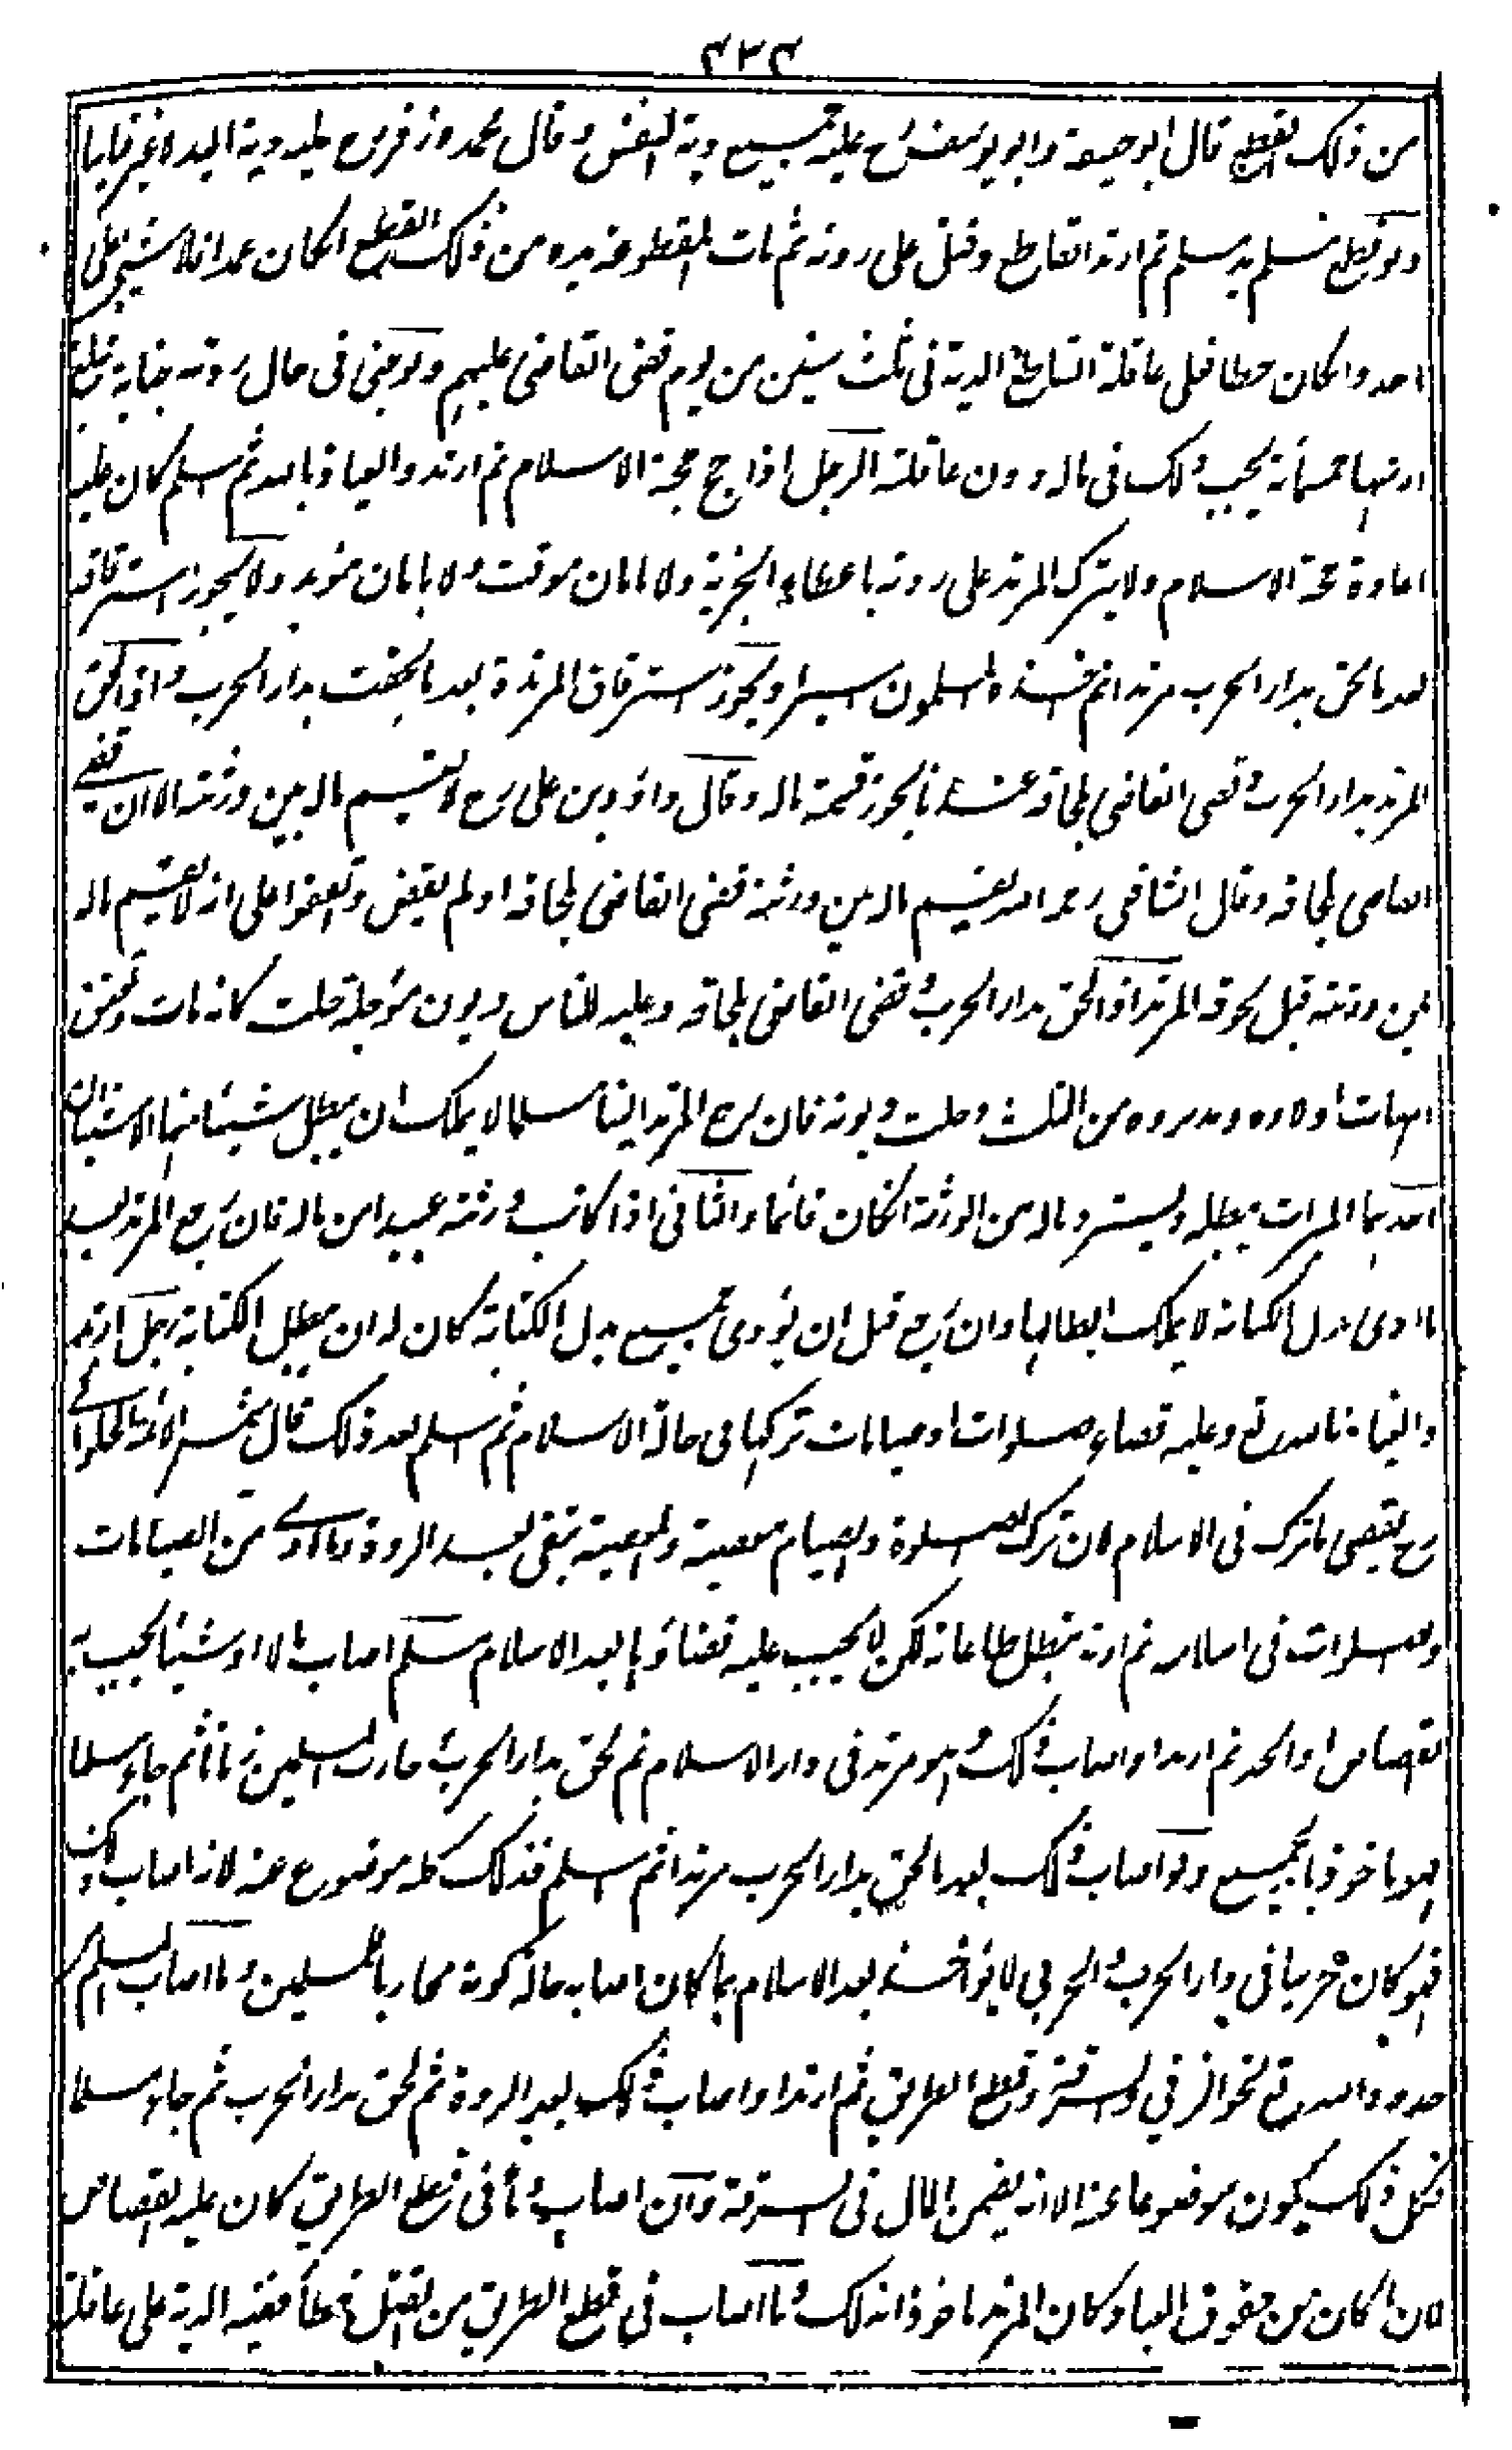 ٤٢٤
من ذلك القطع قال ابو حنيفة وابو يوسف رح عليه جميع دية النفس وقال محمد وزفر رح عليه دية اليد لا غير
ولو قطع مسلم يد مسلم ثم ارتد القاطع وقتل على ردته ثم مات المقطوعة يده من ذلك القطع انكان عمدا فلا شيء على
احد وانكان خطا فعلى عاقلة القاطع الدية في ثلث سنين من يوم قضى القاضي عليهم ولو جنى في حال ردته جناية يبلغ
ارشها خمسمائة يجب ذلك في ماله دون عاقلته الرجل اذا حج حجة الاسلام ثم ارتد والعياذ بالله ثم اسلم كان عليه
اعادة حجة الاسلام ولا يترك المرتد على ردته باعطاء الجزية ولا بامان موقت ولا بامان مؤبد ولا يجوز استرقاقه
بعد ما لحق بدار الحرب مرتدا ثم اخذه المسلمون اسيرا ويجوز استرقاق المرتدة بعد ما لحقت بدار الحرب واذا لحق
المرتد بدار الحرب وقضى القاضي بلحاقه عندنا يجوز قسمة ماله وقال داؤد بن علي رح لا يقسم ماله بين ورثته الا ان يقضي
القاضي بلحاقه وقال الشافعي رحمه الله يقسم ماله بين ورثته قضى القاضي بلحاقه او لم يقض واتفقوا على انه لا يقسم ماله
بين ورثته قبل لحوقه المرتد اذا لحق بدار الحرب وقضى القاضي بلحاقه وعليه للناس ديون مؤجلة حلت كانه مات وتعتق
امهات اولاده ومدبروه من الثلث وحلت ديونه فان رجع المرتد الينا مسلما لا يملك ان يبطل شيئا منها الا شيئان
احدهما الميراث يبطله ويسترد ماله من الورثة انكان قائما والثاني اذا كاتب ورثته عبيدا من ماله فان رجع المرتد بعد
ما ادى بدل الكتابة لا يملك ابطالها وان رجع قبل ان يؤدى جميع بدل الكتابة كان له ان يبطل الكتابة رجل ارتد
والعياذ بالله تع وعليه قضاء صلوات او صيامات تركها في حالة الاسلام ثم اسلم بعد ذلك قال شمس الائمة الحلوائي
رح يقضى ما ترك في الاسلام لان ترك الصلوة والصيام معصية والمعصية تبقى بعد الردة وما ادى من الصيامات
والصلوات في اسلامه ثم ارتد يبطل طاعاته لكن لا يجب عليه قضاؤها بعد الاسلام مسلم اصاب مالا او شيئا يجب به
القصاص او الحد ثم ارتد او اصاب ذلك وهو مرتد في دار الاسلام ثم لحق بدار الحرب وحارب المسلمين زمانا ثم جاء مسلما
فهو ماخوذ بالجميع ولو اصاب ذلك بعد ما لحق بدار الحرب مرتدا ثم اسلم فذلك كله موضوع عنه لانه اصاب ذلك
فهو كان حربيا في دار الحرب والحربي لا يؤاخذ بعد الاسلام بما كان اصابه حالة كونه محاربا للمسلمين وما اصاب المسلم من
حدود الله تع نحو الزنى والسرقة وقطع الطريق ثم ارتد او اصاب ذلك بعد الردة ثم لحق بدار الحرب ثم جاء مسلما
فكل ذلك يكون موضوعا عنه الا انه يضمن المال في السرقة وان اصاب دما في قطع الطريق كان عليه القصاص
لان ما كان من حقوق العباد كان المرتد ماخوذا بذلك وما اصاب في قطع الطريق من القتل خطأ ففيه الدية على عاقلته